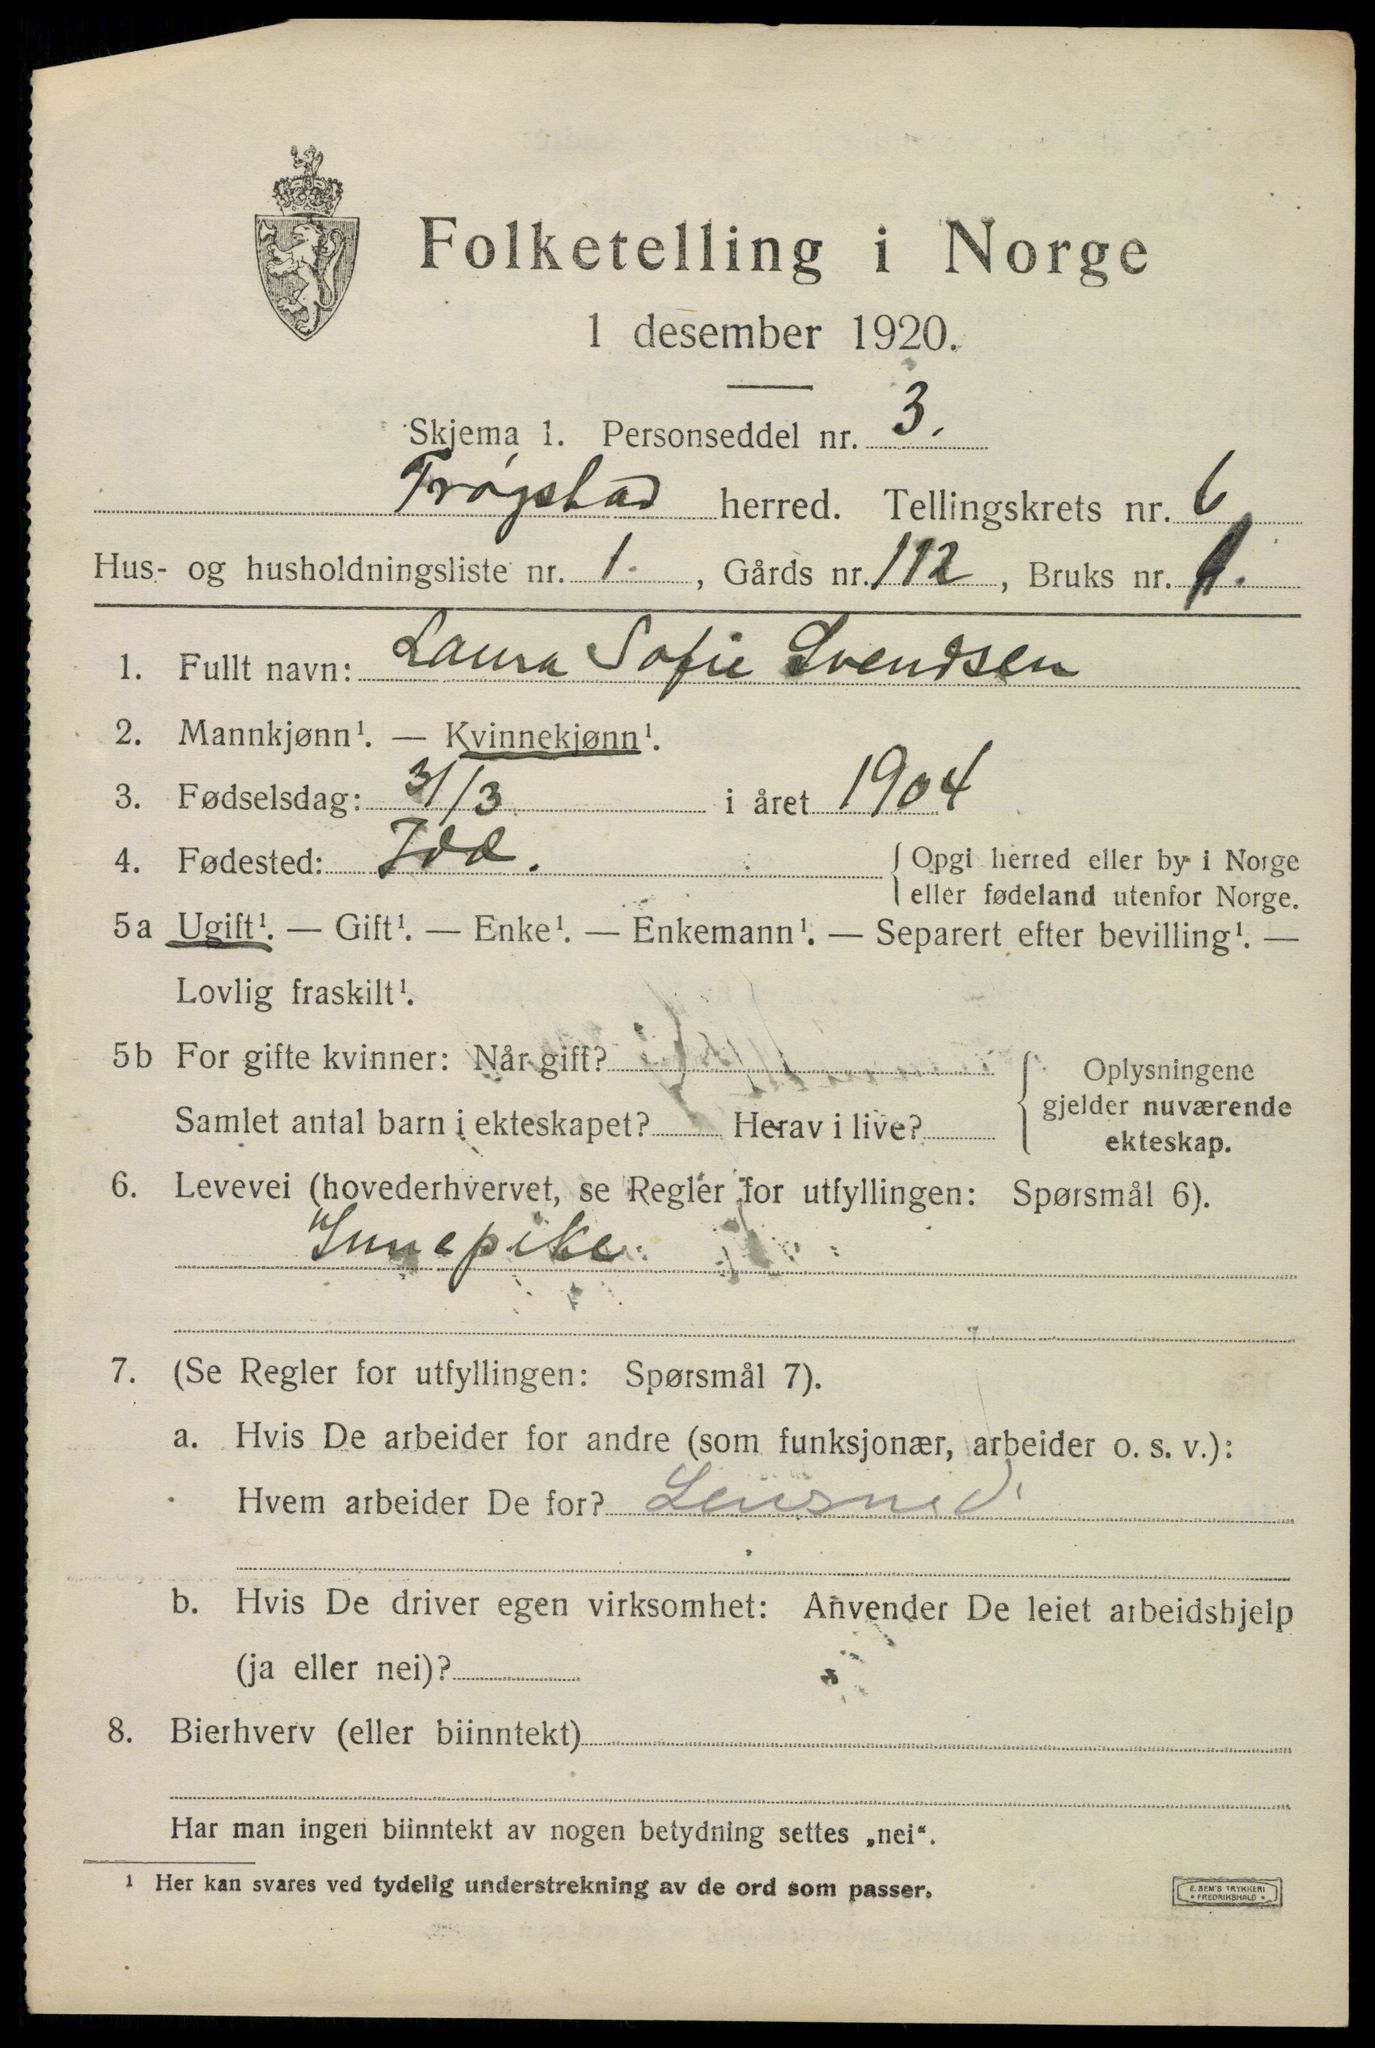 Folketelling i Norge
1 desember 1920.
Skjema 1. Personseddel nr. 3.
Trøgstad herred. Tellingskrets nr. 6
Hus- og husholdningsliste nr. 1. , Gårds nr. 112 , Bruks nr. 1.
1. Fullt navn: Laura Sofie Svendsen
2. Mannkjønn¹. — Kvinnekjønn¹.
3. Fødselsdag: 31/3 i året 1904
4. Fødested: Idd. Opgi herred eller by i Norge
eller fødeland utenfor Norge.
5a Ugift¹. — Gift¹. — Enke¹. — Enkemann¹. — Separert efter bevilling¹. —
Lovlig fraskilt¹.
5b For gifte kvinner: Når gift?
Samlet antal barn i ekteskapet? Herav i live?
Oplysningene
gjelder nuværende
ekteskap.
6. Levevei (hovederhvervet, se Regler for utfyllingen: Spørsmål 6).
7. (Se Regler for utfyllingen: Spørsmål 7).
a. Hvis De arbeider for andre (som funksjonær, arbeider o. s. v.):
Hvem arbeider De for? Lensmed
b. Hvis De driver egen virksomhet: Anvender De leiet arbeidshjelp
(ja eller nei)?
8. Bierhverv (eller biinntekt)
Har man ingen biinntekt av nogen betydning settes „nei“.
¹ Her kan svares ved tydelig understrekning av de ord som passer.
E. SEM'S TRYKKERI
* FREDRIKSHALD *